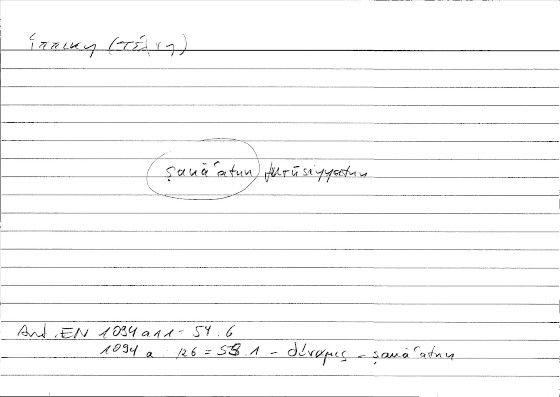 ἱππικη (τέχνη)
ṣanāʿatun furūsiyyatun
Arist. EN 1094 a 11 = 54.6
1094 a 26 = 55.1 - δύναμις - ṣanāʿatun